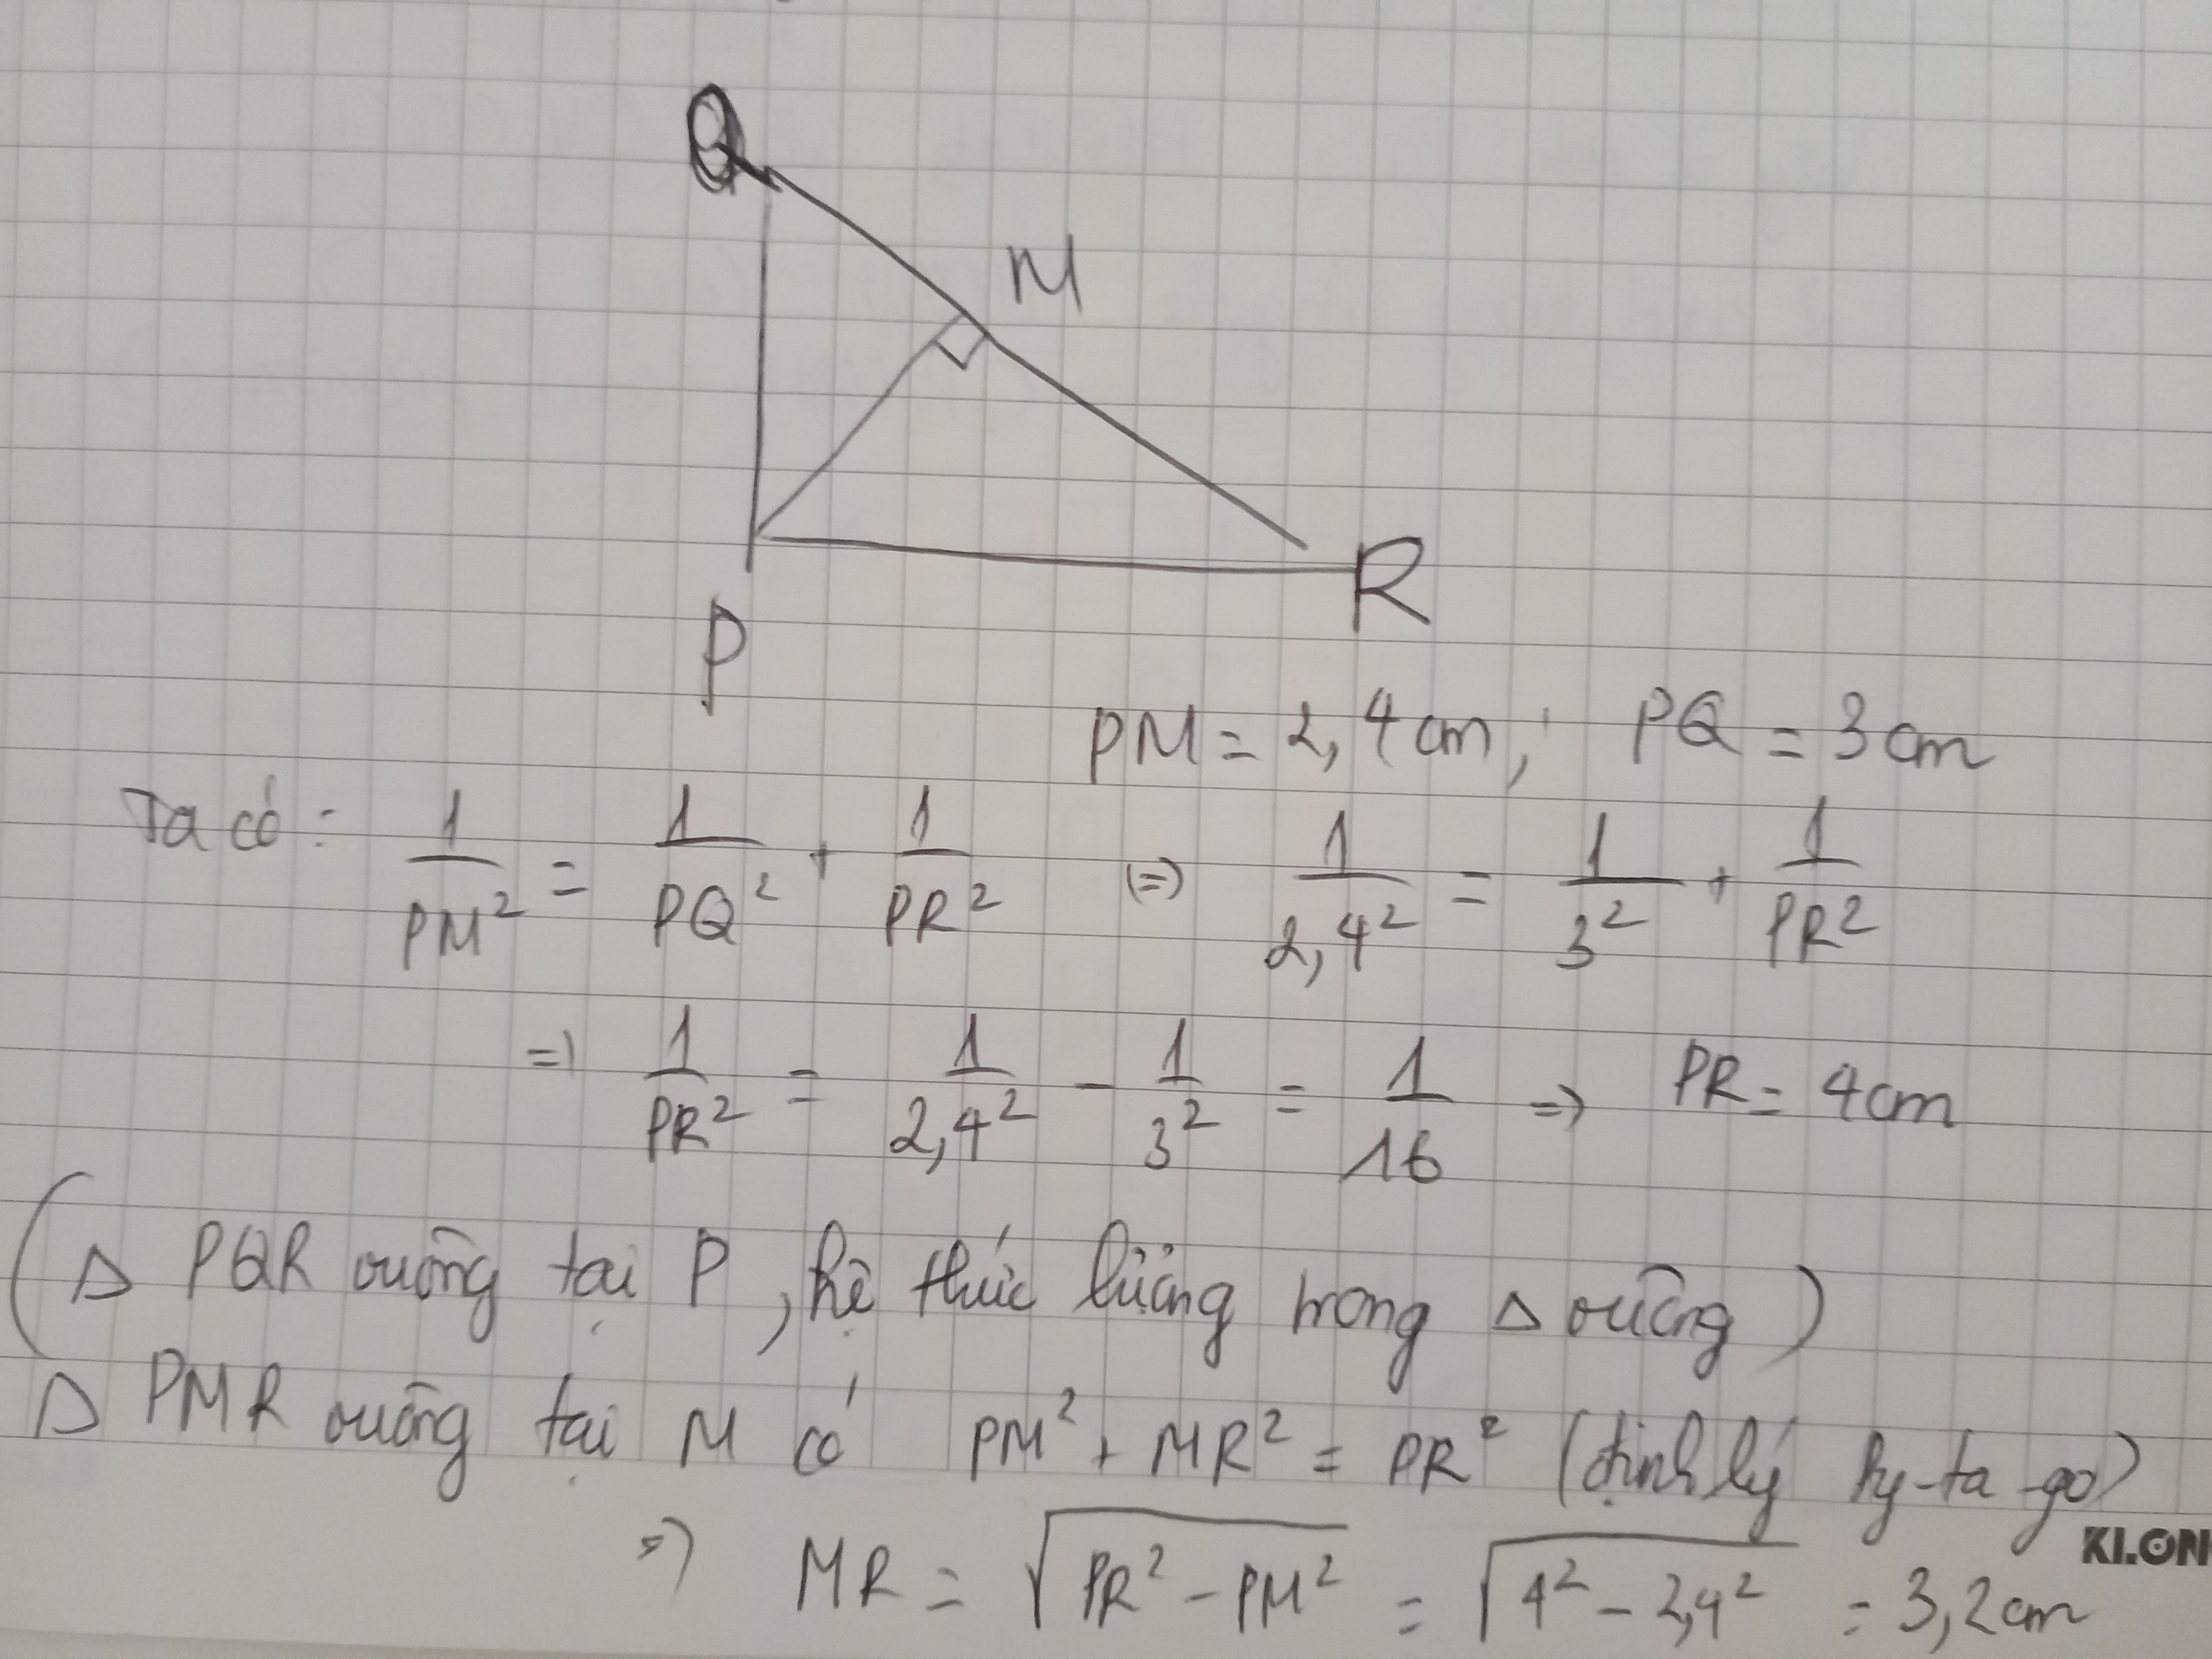 Q
M
P
R
PM = 2,4cm; PQ = 3cm
Ta có: 1/PM² = 1/PQ² + 1/PR² (=) 1/2,4² = 1/3² + 1/PR²
=) 1/PR² = 1/2,4² - 1/3² = 1/16 => PR = 4cm
(Δ PQR vuông tại P, hệ thức lượng trong Δ vuông)
Δ PMR vuông tại M có PM² + MR² = PR² (định lý Py-ta-go)
KLON
=) MR = √(PR² - PM²) = √(4² - 2,4²) = 3,2cm